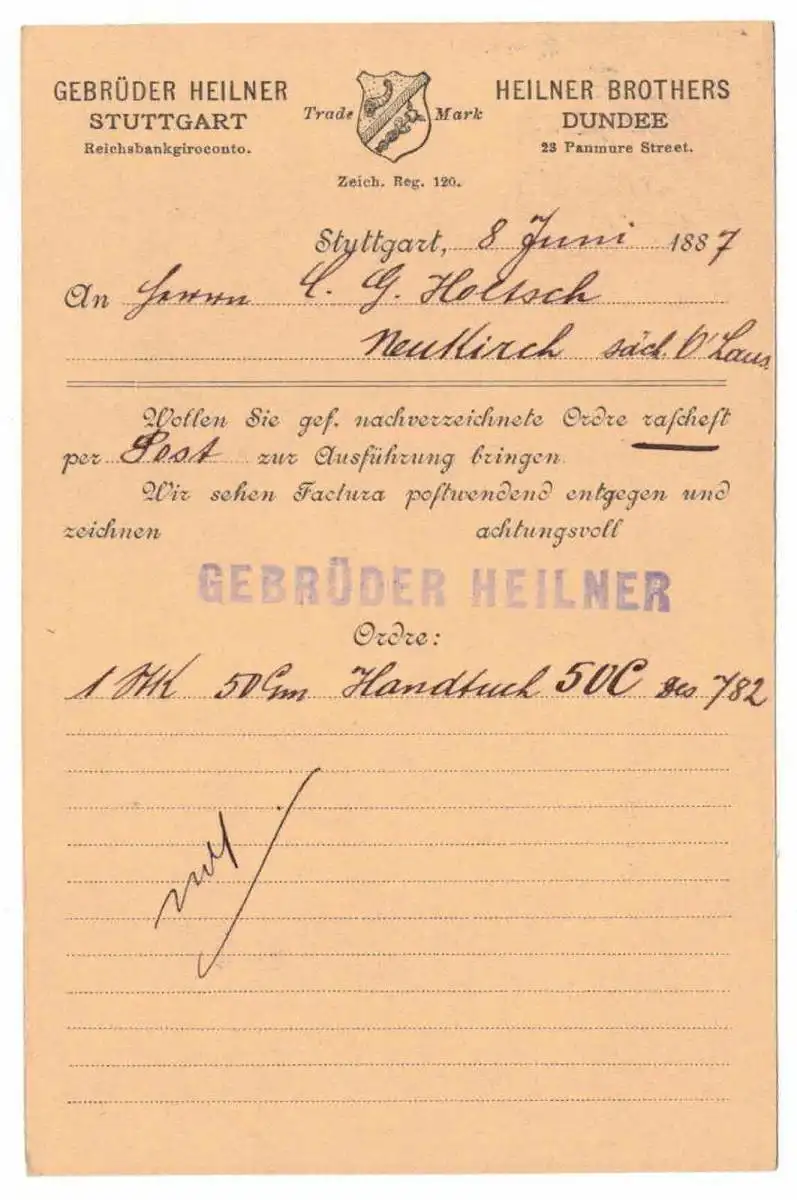 GEBRÜDER HEILNER
STUTTGART
Reichsbankgiroconto.
Trade Mark
Zeich. Reg. 120.
HEILNER BROTHERS
DUNDEE
23 Panmure Street.
Stuttgart, 8 Juni 1887
An Herrn C. G. Holtsch
Neukirch säch. O'Laus
Wollen Sie gef. nachverzeichnete Ordre raschest
per Post zur Ausführung bringen.
Wir sehen Factura postwendend entgegen und
zeichnen achtungsvoll
GEBRÜDER HEILNER
Ordre:
1 Stk 50 Cm Handtuch 50C Des 782